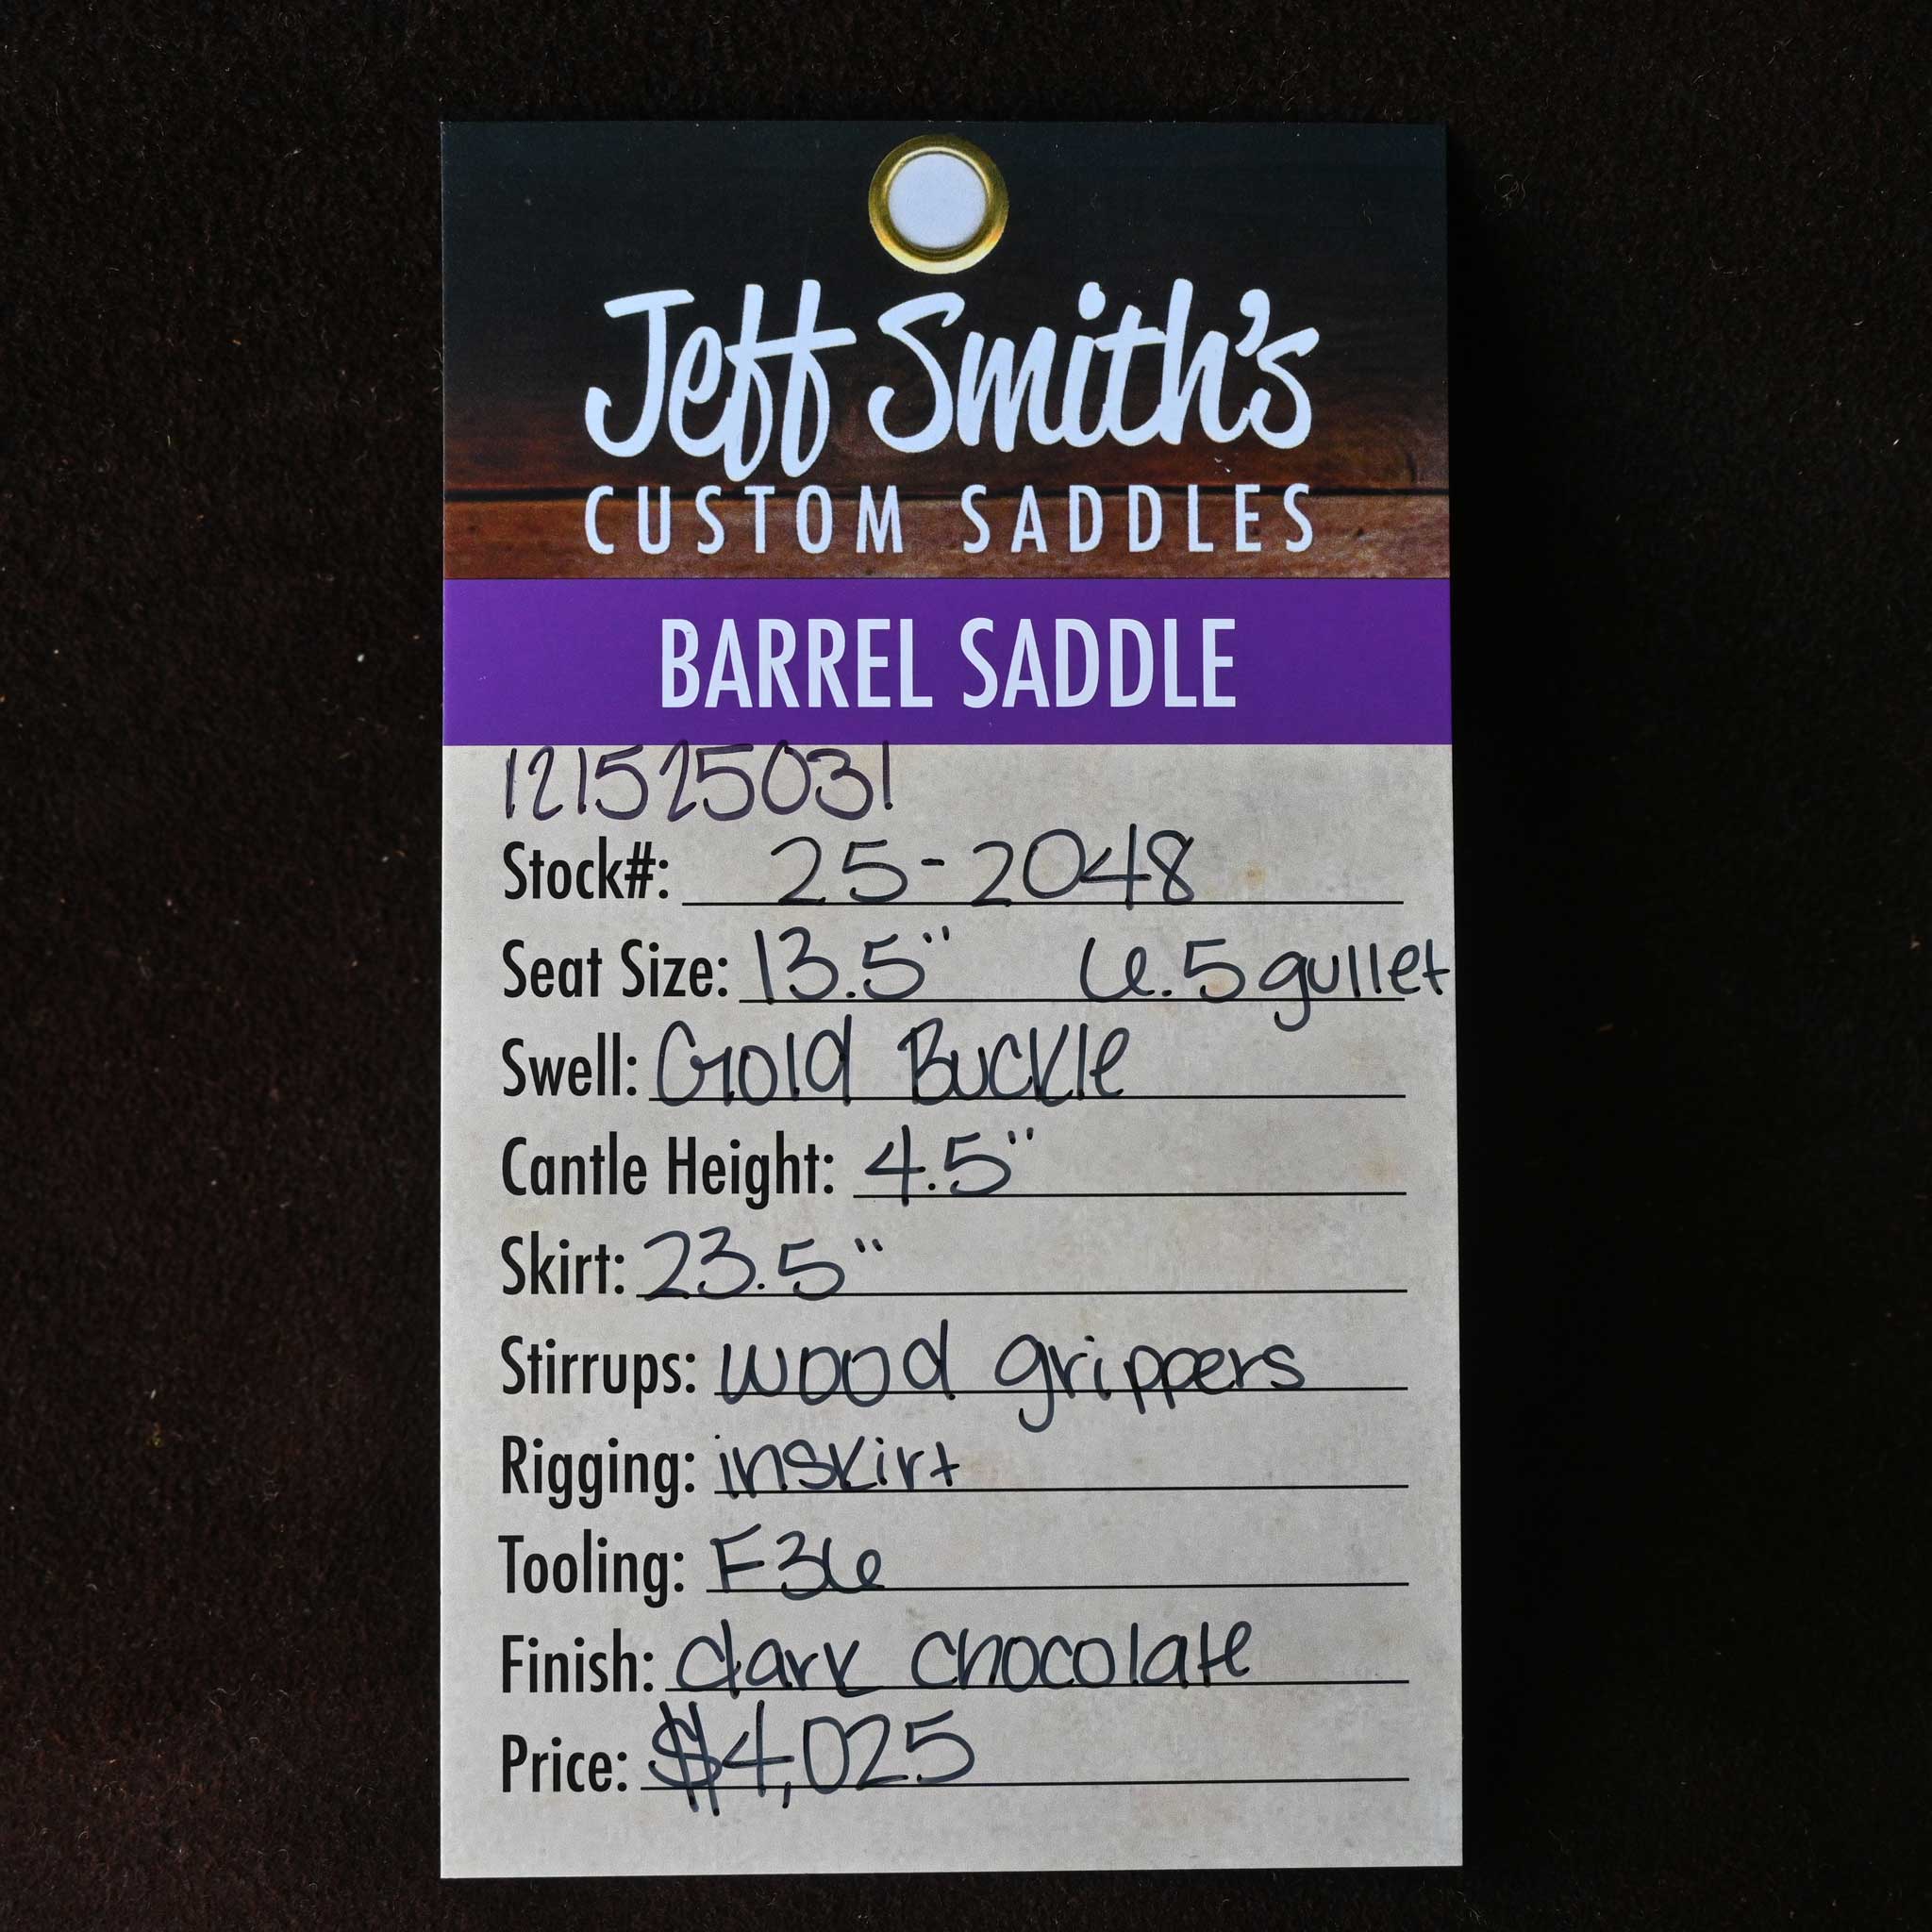 Jeff Smith's
CUSTOM SADDLES
BARREL SADDLE
121525031
Stock#: 25-2048
Seat Size: 13.5" 6.5 gullet
Swell: Gold Buckle
Cantle Height: 4.5"
Skirt: 23.5"
Stirrups: wood grippers
Rigging: inskirt
Tooling: F36
Finish: dark chocolate
Price: $4,025